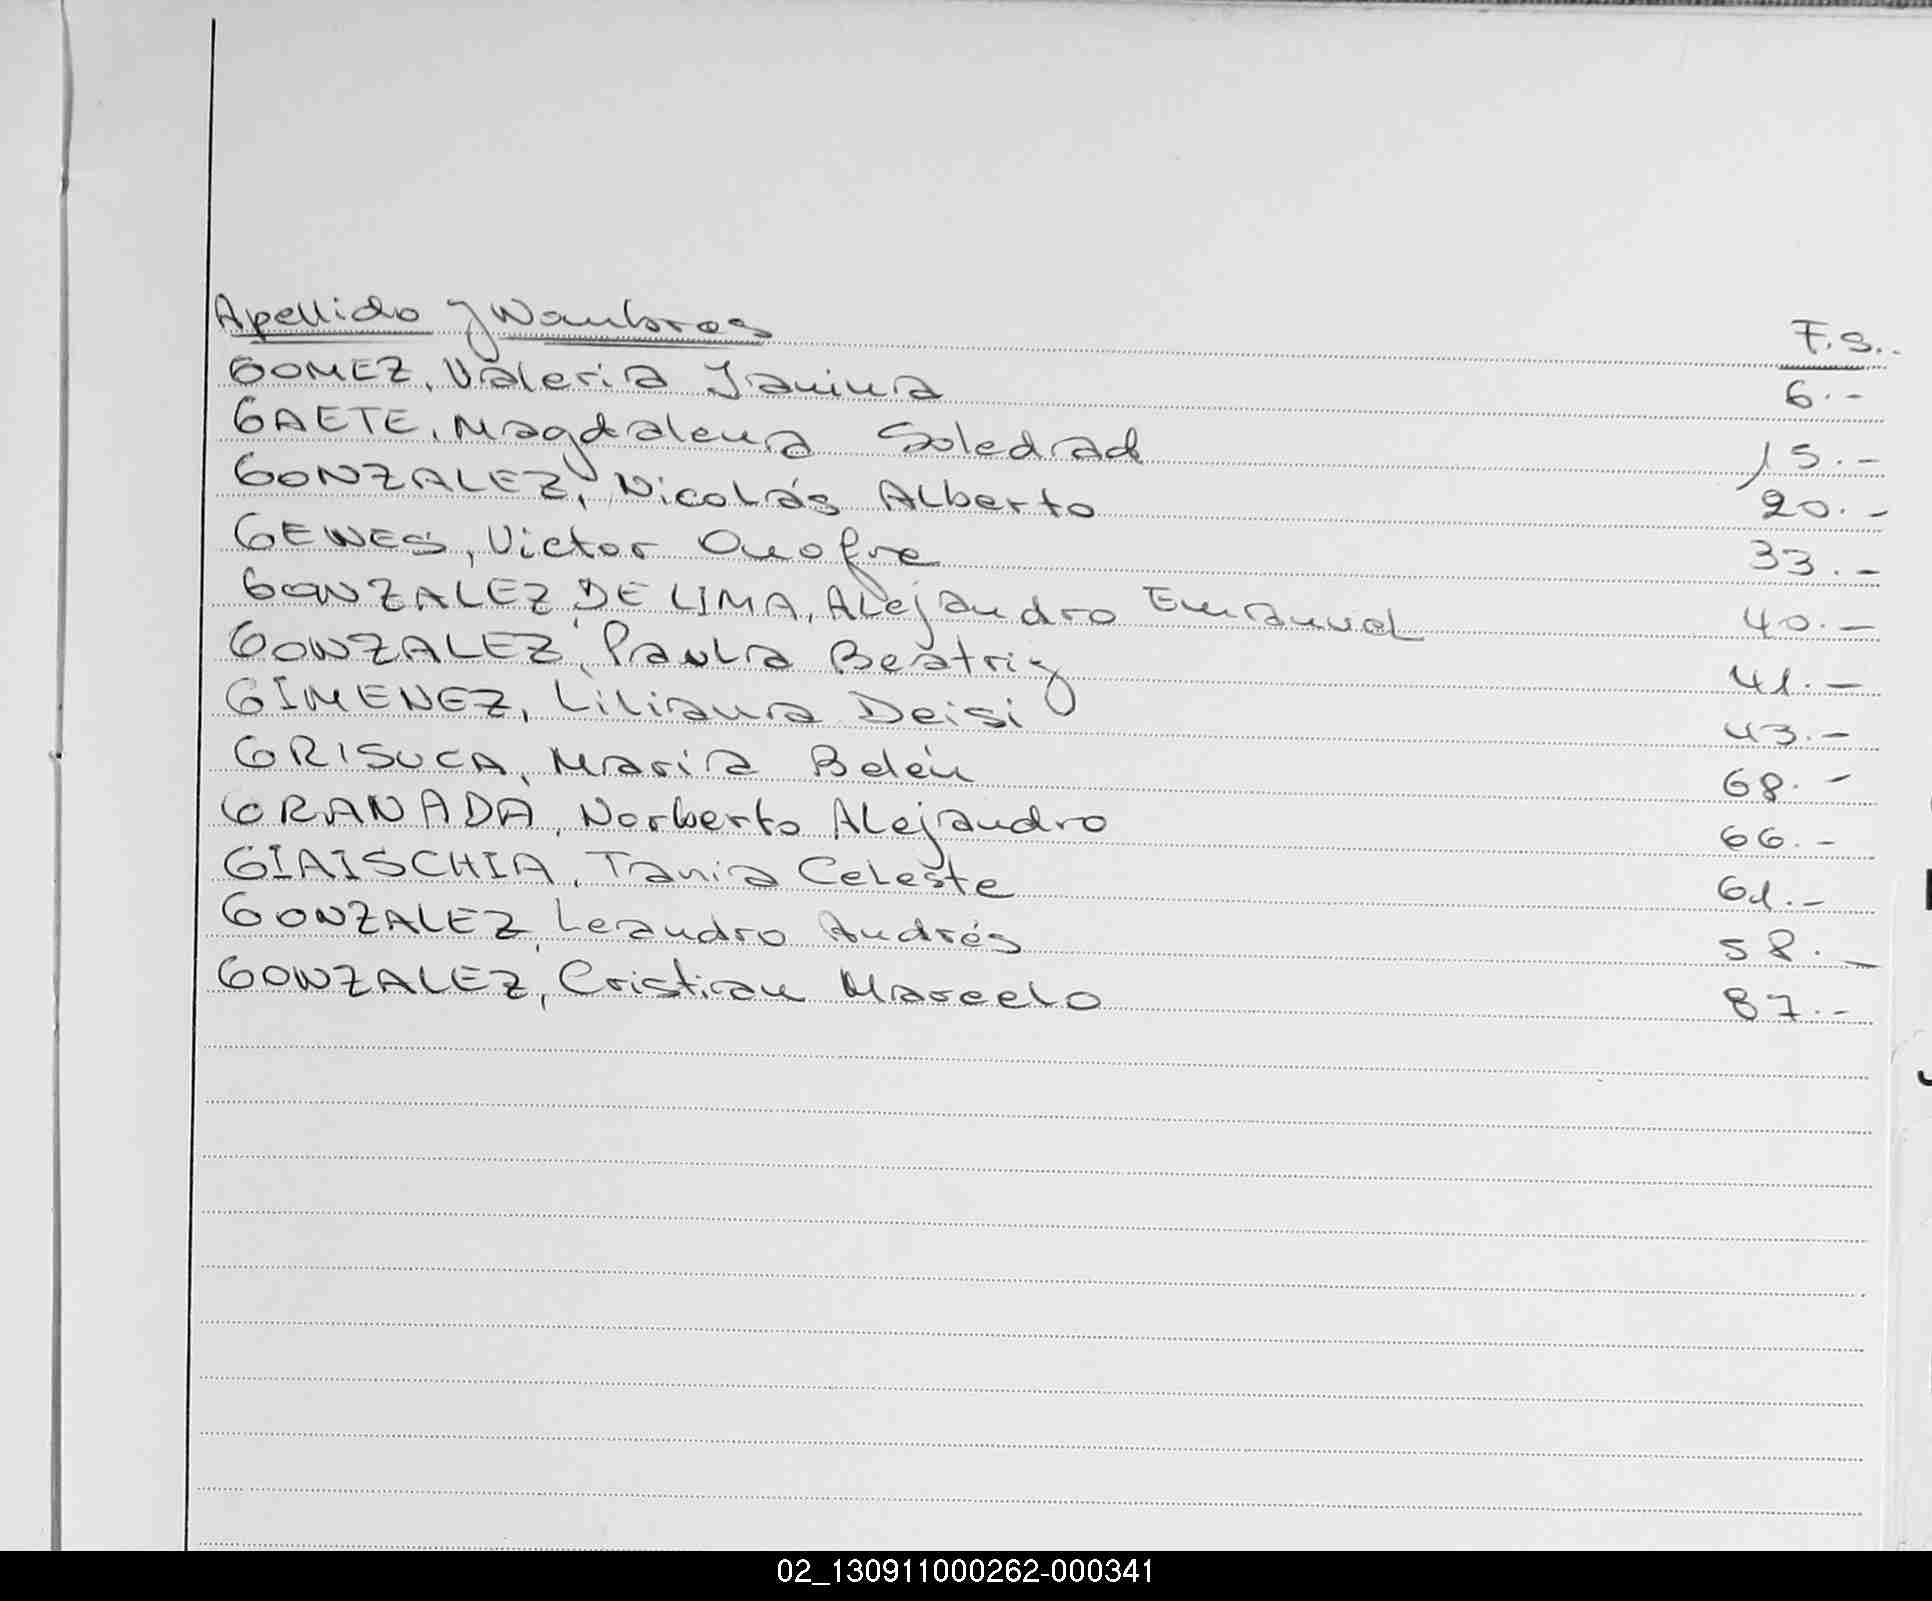 Apellido y Nombres F.S..
GOMEZ, Valeria Janina 6.-
GAETE, Magdalena Soledad 15.-
GONZALEZ, Nicolás Alberto 20.-
GENES, Victor Onofre 33.-
GONZALEZ DE LIMA, Alejandro Emanuel 40.-
GONZALEZ, Paula Beatriz 41.-
GIMENEZ, Liliana Deisi 43.-
GRISUCA, Maria Belén 68.-
GRANADA, Norberto Alejandro 66.-
GIAISCHIA, Tania Celeste 61.-
GONZALEZ, Leandro Andrés 58.-
GONZALEZ, Cristian Marcelo 87.-
02_130911000262-000341